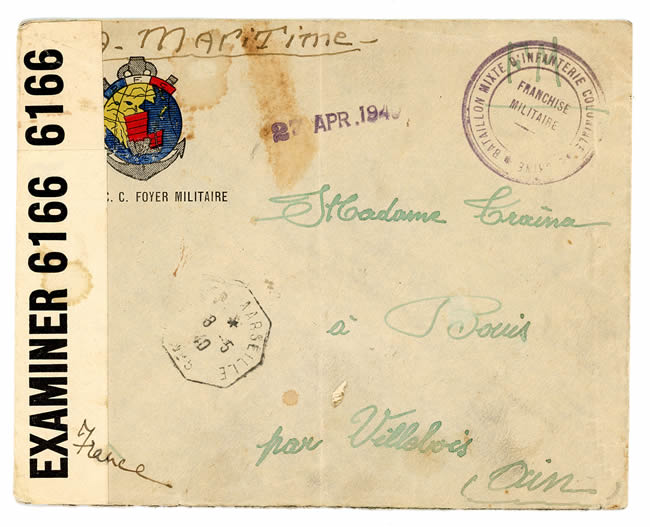 - MariTime -
EXAMINER 6166 6166
27 APR. 194
BATAILLON MIXTE D'INFANTERIE COLONIALE
FRANCHISE
MILITAIRE
C. C. FOYER MILITAIRE
Madame Traïna
MARSEILLE
*
8 - 5
40
à Bouis
par Villebois
(Ain)
France